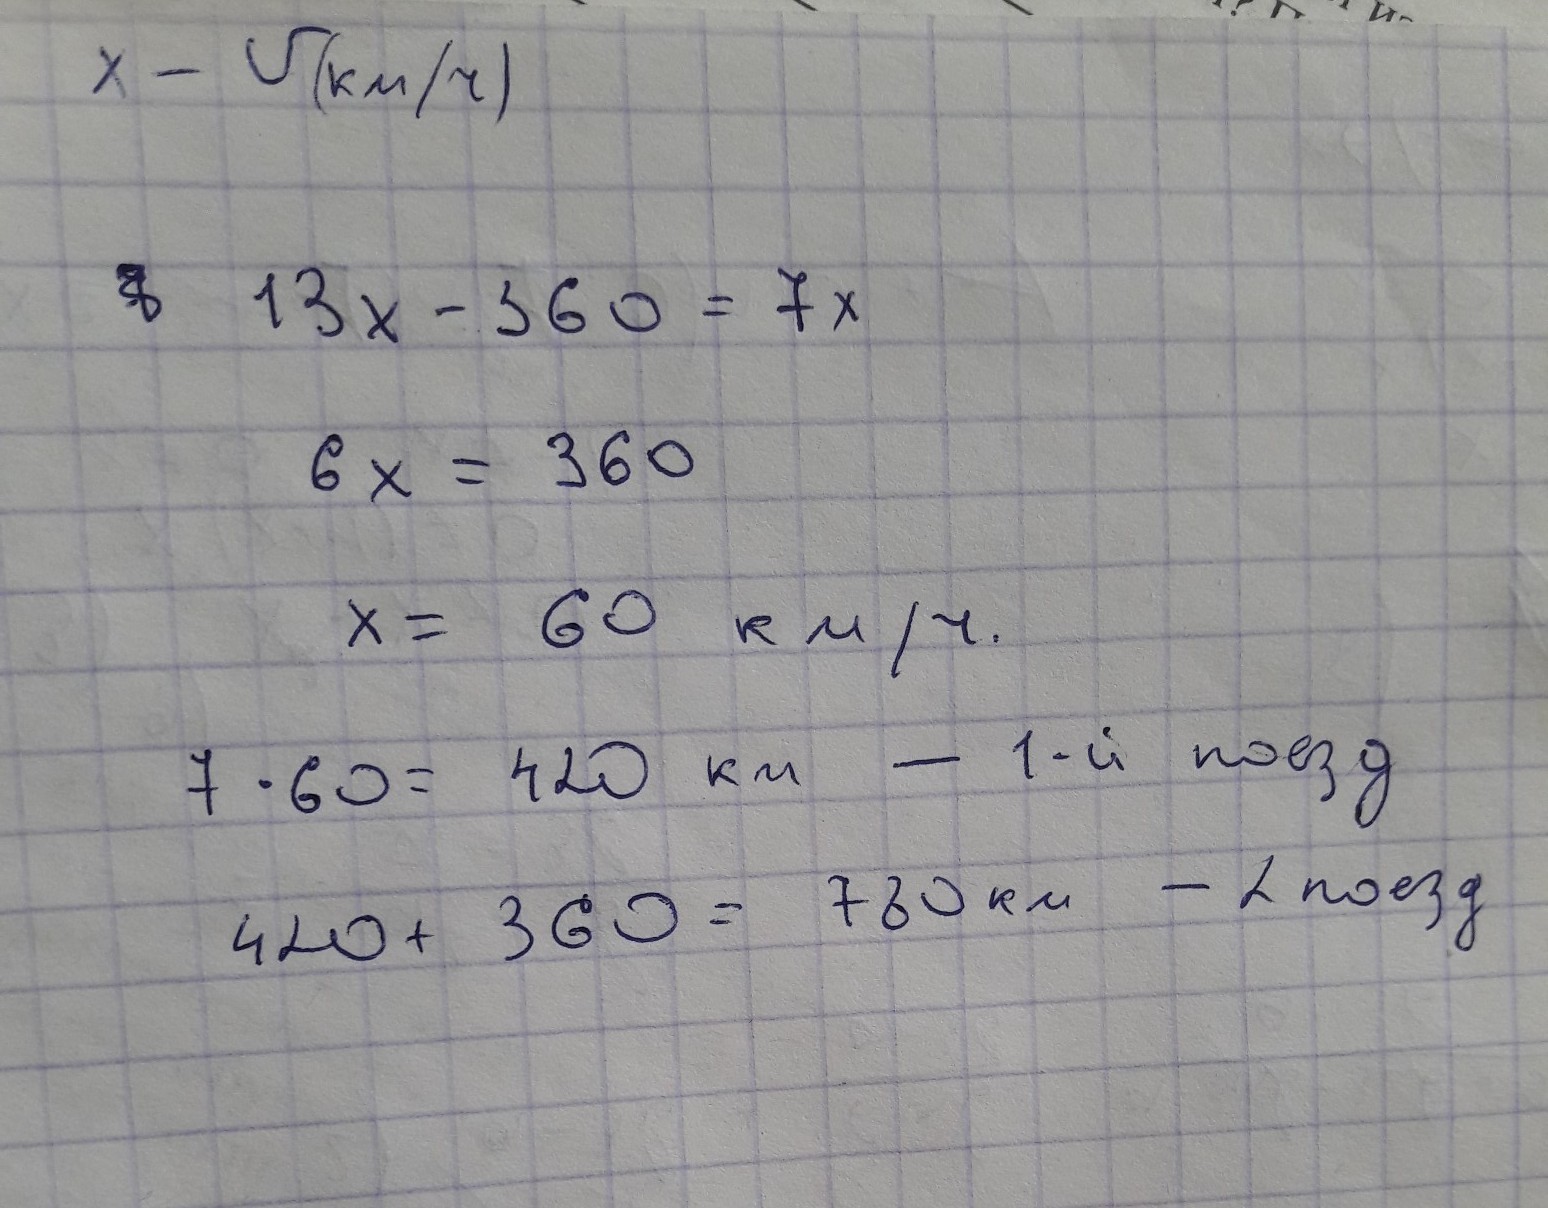 x - V(км/ч)
13x - 360 = 7x
6x = 360
x = 60 км/ч.
7 · 60 = 420 км - 1-й поезд
420 + 360 = 780 км - 2 поезд